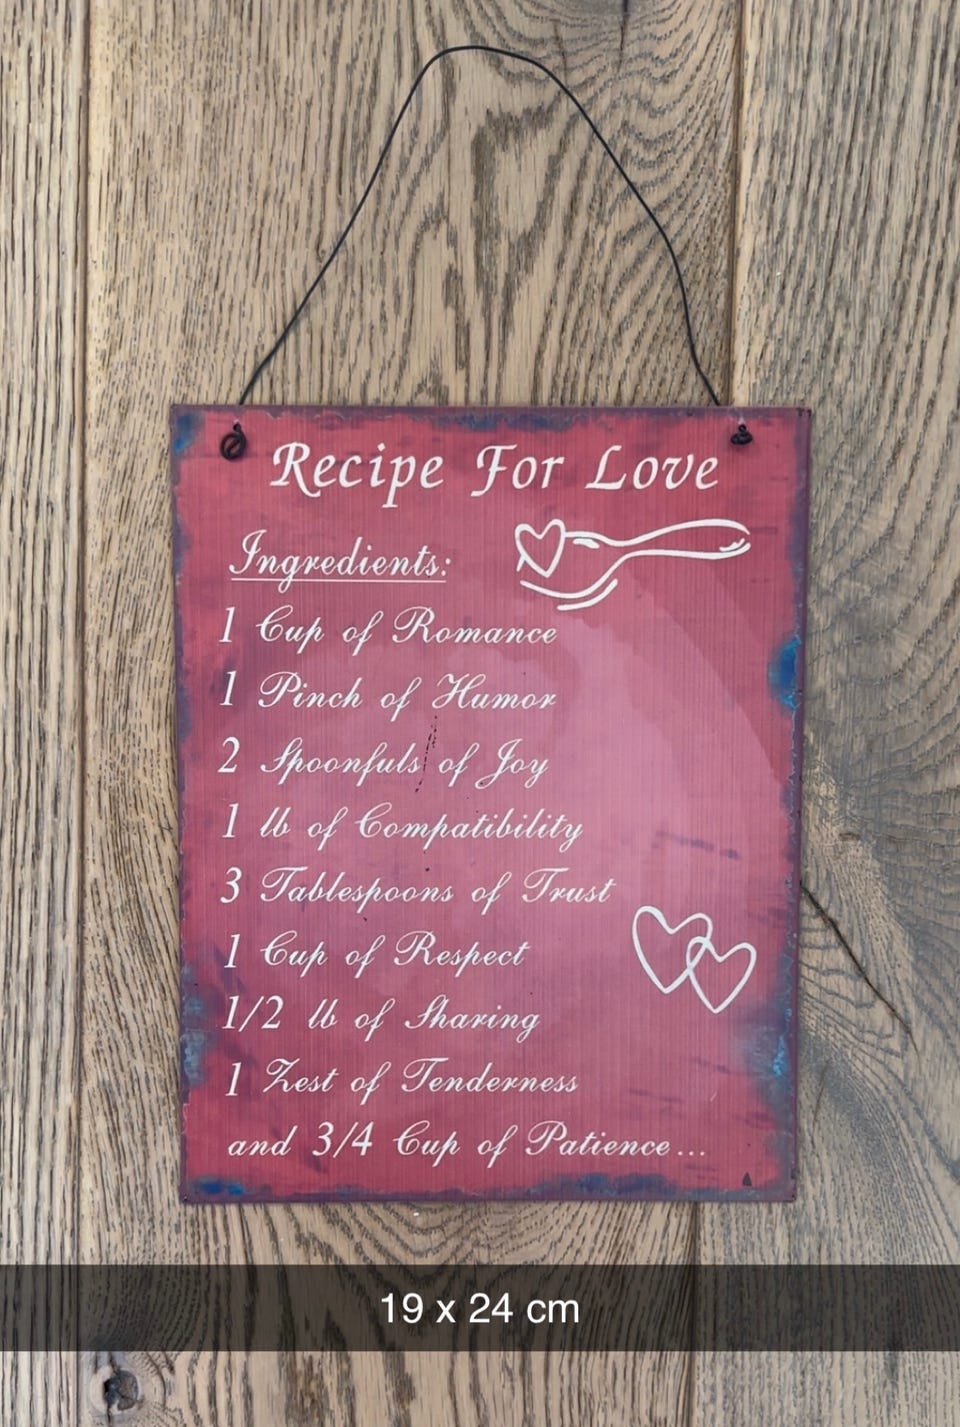 Recipe For Love
Ingredients:
1 Cup of Romance
1 Pinch of Humor
2 Spoonfuls of Joy
1 lb of Compatibility
3 Tablespoons of Trust
1 Cup of Respect
1/2 lb of Sharing
1 Zest of Tenderness
and 3/4 Cup of Patience...
19 x 24 cm